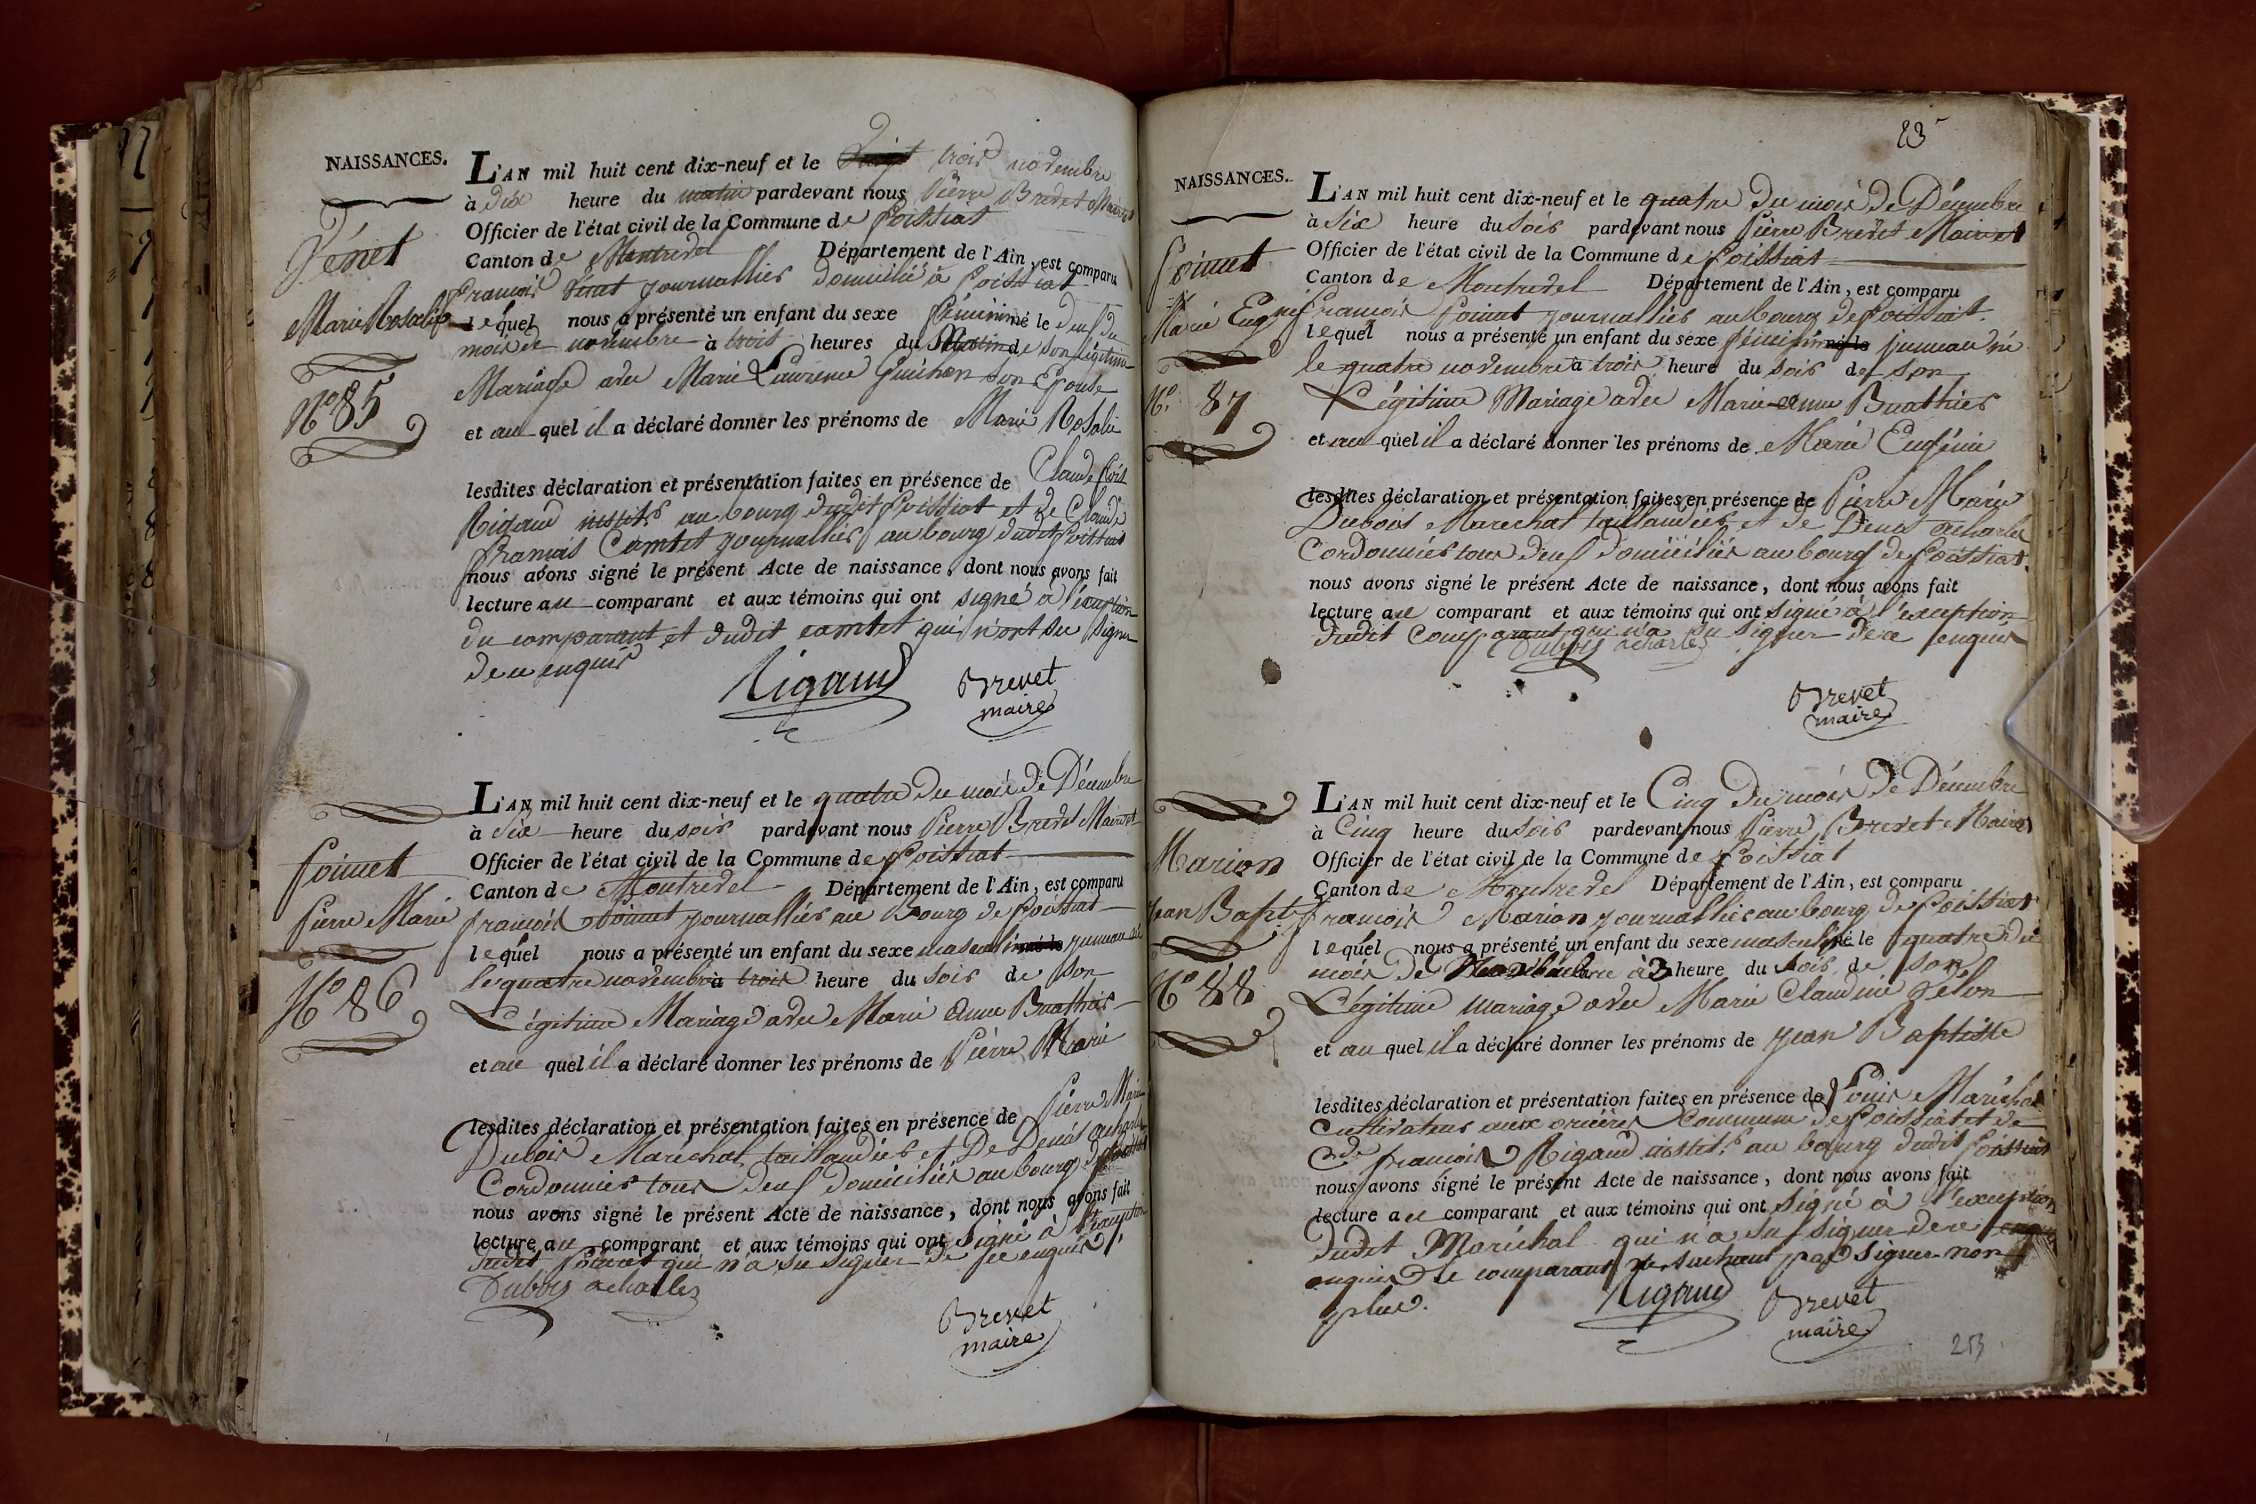 NAISSANCES.
Vénet
Marie Rosalie
N° 85
L'AN mil huit cent dix-neuf et le trois novembre
à dix heure du matin pardevant nous Pierre Brevet Maire
Officier de l'état civil de la Commune de Foissiat
Canton de Montrevel Département de l'Ain, est comparu
François Vénet journallier domicilié à Foissiat
lequel nous a présenté un enfant du sexe féminin né le deux du
mois de novembre à trois heures du Matin de son légitime
Mariage avec Marie Laurence Guichon son Epouse
et au quel il a déclaré donner les prénoms de Marie Rosalie
lesdites déclaration et présentation faites en présence de Claude
Rigaud au bourg dudit Foissiat et de Claude
François Comtet journallier au bourg dudit Foissiat
nous avons signé le présent Acte de naissance, dont nous avons fait
lecture au comparant et aux témoins qui ont signé à l'exception
du comparant et dudit comtet qui n'ont su signer
de ce enquis
Rigaud Brevet
maire
Poimet
Pierre Marie
N° 86
L'AN mil huit cent dix-neuf et le quatre du mois de Décembre
à Six heure du soir pardevant nous Pierre Brevet Maire et
Officier de l'état civil de la Commune de Foissiat
Canton de Montrevel Département de l'Ain, est comparu
François Poimet journallier au Bourg de Foissiat
lequel nous a présenté un enfant du sexe masculin né le jumeau né
le quatre novembre à trois heure du soir de son
Légitime Mariage avec Marie Anne Buathier
et au quel il a déclaré donner les prénoms de Pierre Marie
lesdites déclaration et présentation faites en présence de Pierre Marie
Dubois Marechal taillandier et De Denis acharles
Cordonnier tous deux domiciliés au bourg de Foissiat
nous avons signé le présent Acte de naissance, dont nous avons fait
lecture au comparant et aux témoins qui ont signé à l'exception
dudit Poimet qui n'a su signer de ce enquis
Dubois acharles
Brevet
maire
23
NAISSANCES.
Poimet
Marie Eugnie
N° 87
L'AN mil huit cent dix-neuf et le quatre du mois de Décembre
à Six heure du soir pardevant nous Pierre Brevet Maire et
Officier de l'état civil de la Commune de Foissiat
Canton de Montrevel Département de l'Ain, est comparu
François Poimet journallier au bourg de Foissiat.
lequel nous a présenté un enfant du sexe féminin né le jumeau né
le quatre novembre à trois heure du soir de son
Légitime Mariage avec Marie anne Buathier
et au quel il a déclaré donner les prénoms de Marie Eugénie
lesdites déclaration et présentation faites en présence de Pierre Marie
Dubois Marechal taillandier et de Denis acharles
Cordonnier tous deux domiciliés au bourg de Foissiat.
nous avons signé le présent Acte de naissance, dont nous avons fait
lecture au comparant et aux témoins qui ont signé à l'exception
dudit Comparant qui n'a su signer de ce enquis
Dubois acharles
Brevet
maire
Marion
Jean Bapte
N° 88
L'AN mil huit cent dix-neuf et le Cinq du mois de Décembre
à Cinq heure du soir pardevant nous Pierre Brevet Maire
Officier de l'état civil de la Commune de Foissiat
Canton de Montrevel Département de l'Ain, est comparu
François Marion journallier au bourg de Foissiat
lequel nous a présenté un enfant du sexe masculin né le quatre du
mois de à 3 heure du soir de son
Légitime mariage avec Marie Claudine
et au quel il a déclaré donner les prénoms de Jean Baptiste
lesdites déclaration et présentation faites en présence de Louis Maréchal
Cultivateur aux Commune de Foissiat et de
Cde françois Rigaud au bourg dudit Foissiat
nous avons signé le présent Acte de naissance, dont nous avons fait
lecture au comparant et aux témoins qui ont signé à l'exception
dudit Maréchal qui n'a su signer de ce
enquis le comparant ne sachant pas signer non
plus.
Rigaud Brevet
maire
213